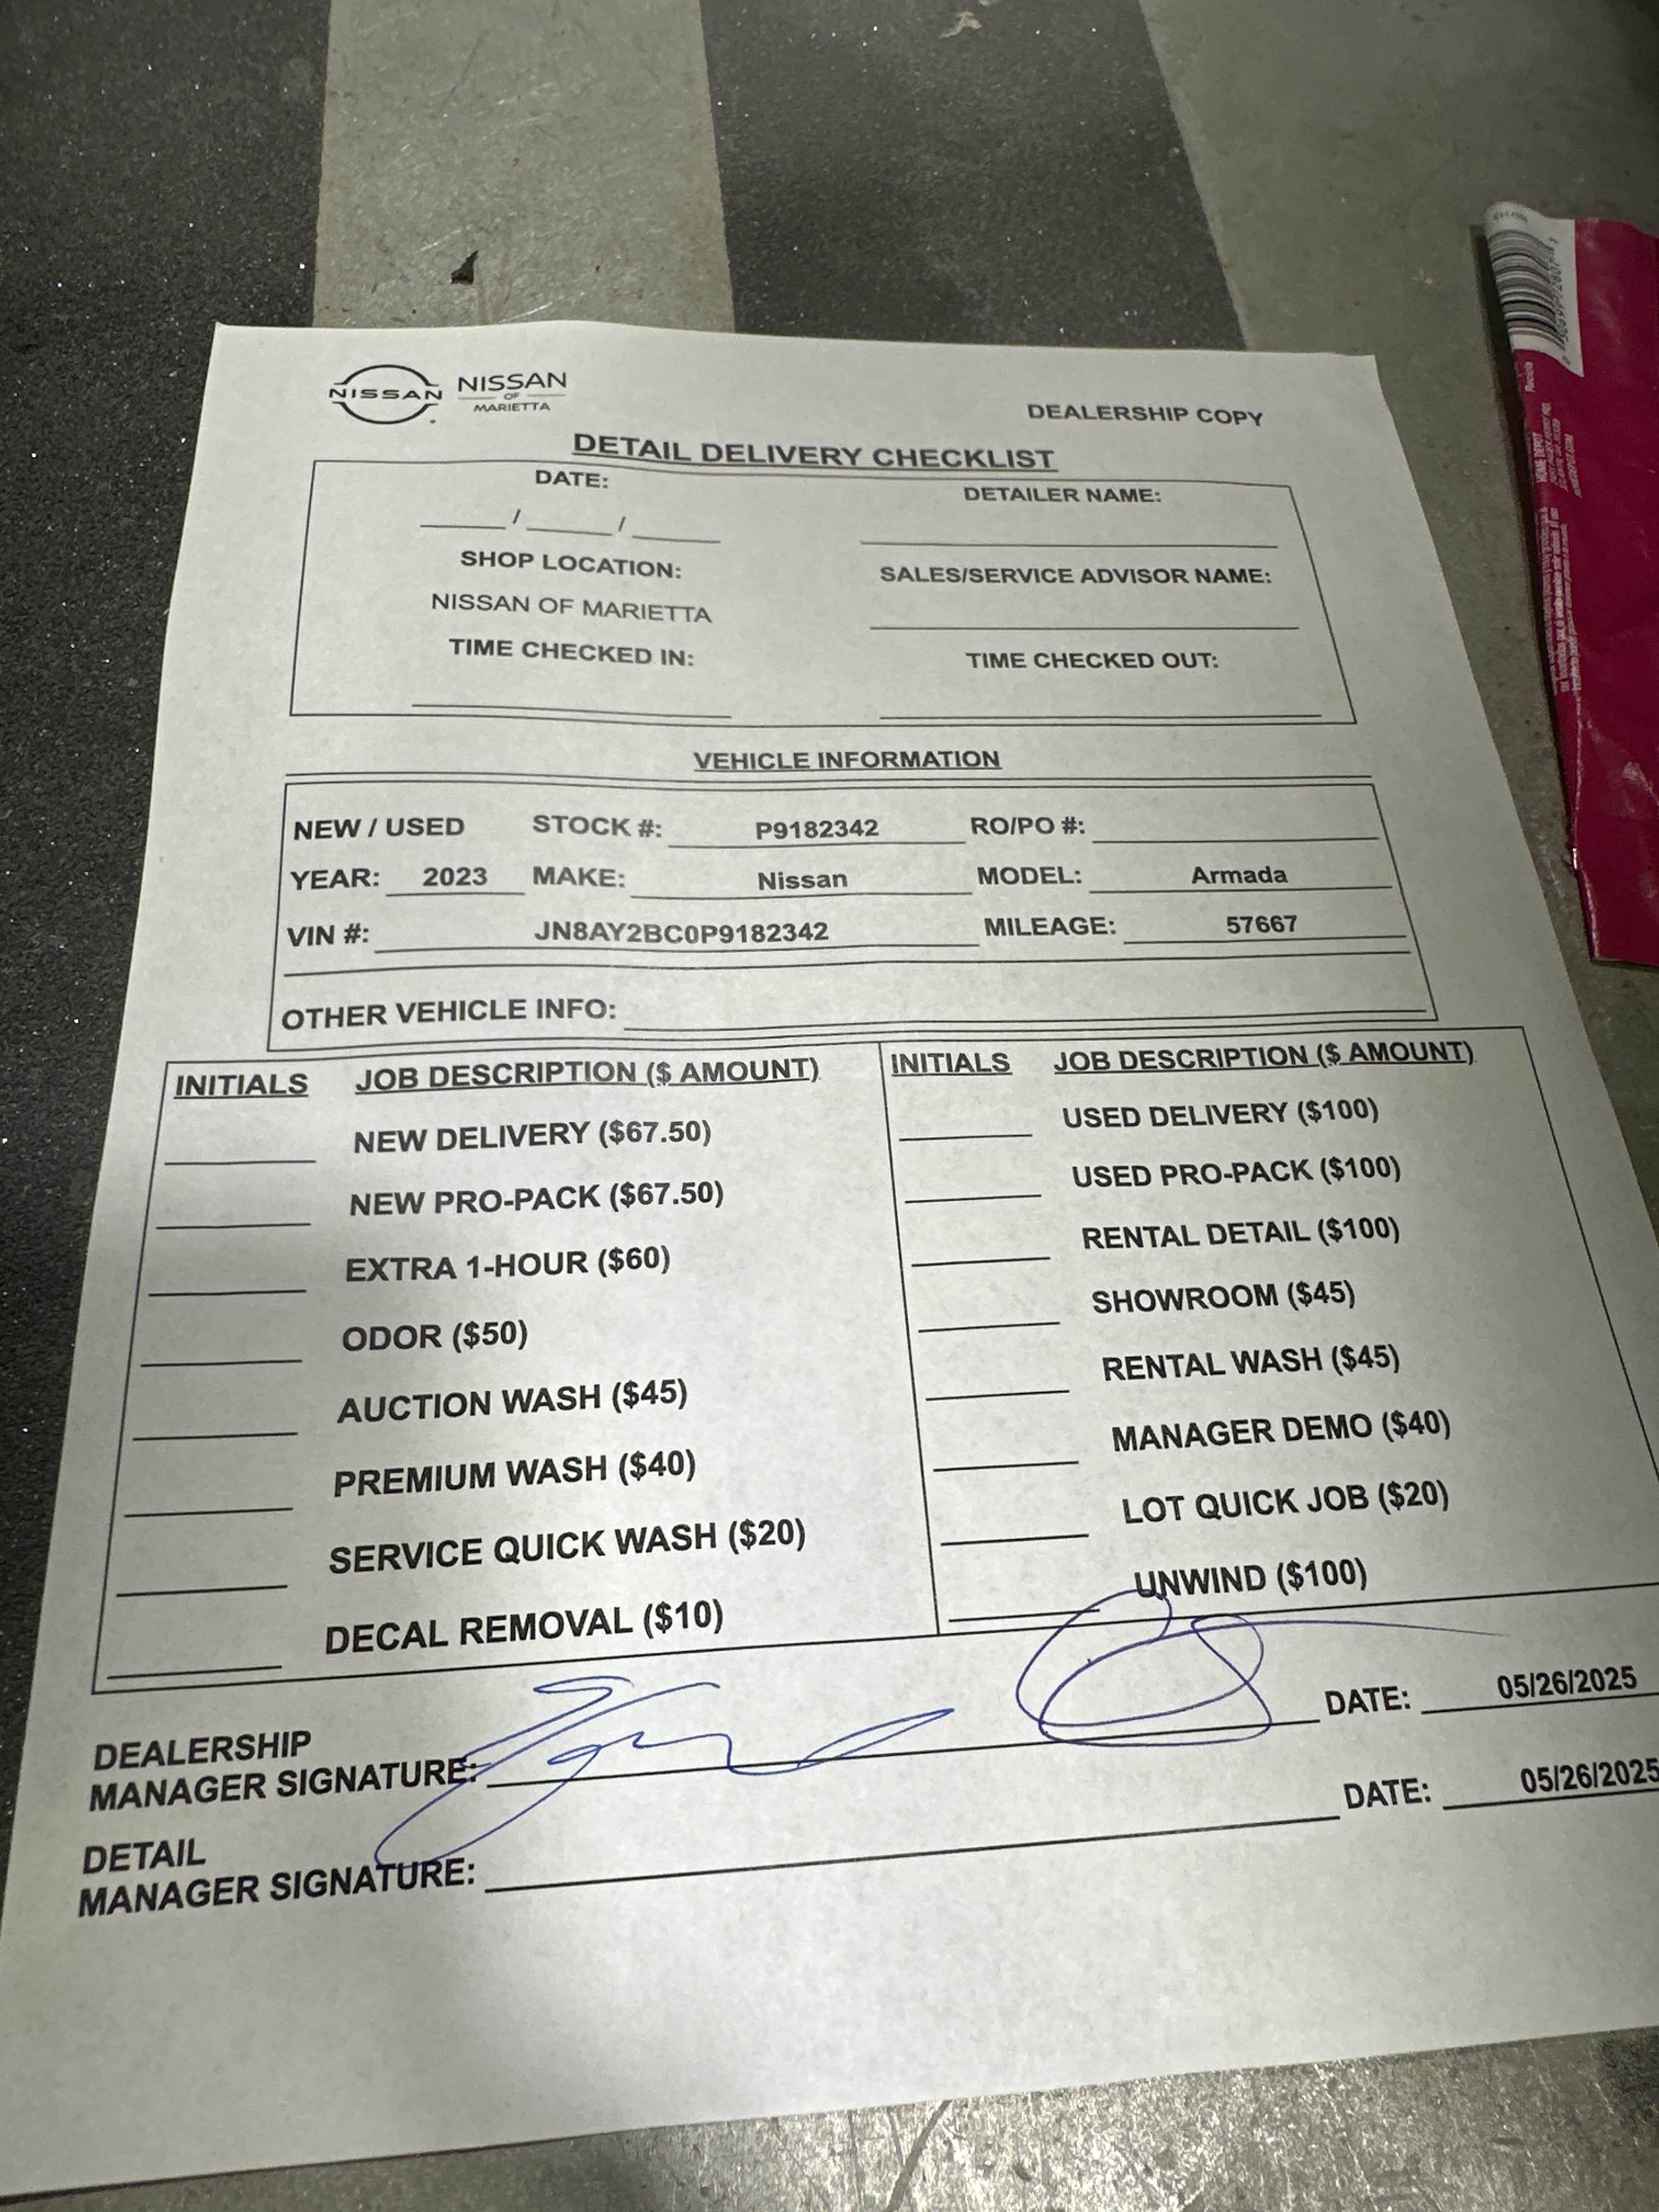 NISSAN
NISSAN
OF
MARIETTA
DEALERSHIP COPY
DETAIL DELIVERY CHECKLIST
DATE:
DETAILER NAME:
____/____/____
SHOP LOCATION:
SALES/SERVICE ADVISOR NAME:
NISSAN OF MARIETTA
TIME CHECKED IN:
TIME CHECKED OUT:
VEHICLE INFORMATION
NEW / USED STOCK #: P9182342 RO/PO #:
YEAR: 2023 MAKE: Nissan MODEL: Armada
VIN #: JN8AY2BC0P9182342 MILEAGE: 57667
OTHER VEHICLE INFO:
INITIALS JOB DESCRIPTION ($ AMOUNT)
NEW DELIVERY ($67.50)
NEW PRO-PACK ($67.50)
EXTRA 1-HOUR ($60)
ODOR ($50)
AUCTION WASH ($45)
PREMIUM WASH ($40)
SERVICE QUICK WASH ($20)
DECAL REMOVAL ($10)
INITIALS JOB DESCRIPTION ($ AMOUNT)
USED DELIVERY ($100)
USED PRO-PACK ($100)
RENTAL DETAIL ($100)
SHOWROOM ($45)
RENTAL WASH ($45)
MANAGER DEMO ($40)
LOT QUICK JOB ($20)
UNWIND ($100)
DEALERSHIP
MANAGER SIGNATURE: DATE: 05/26/2025
DETAIL
MANAGER SIGNATURE: DATE: 05/26/2025
Recicle
HOME DEPOT
HOMEDEPOT.COM